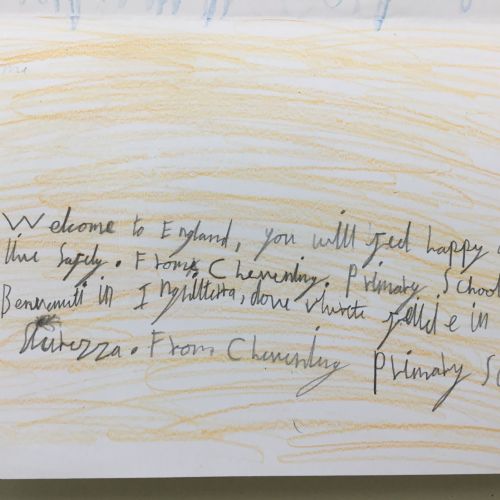 Welcome to England, you willl feel happy
live Safely. From Chevening Primary School
Benvenuti in Inghilterra, dove vivrete felici e in
Sicurezza. From Chevening Primary Sc